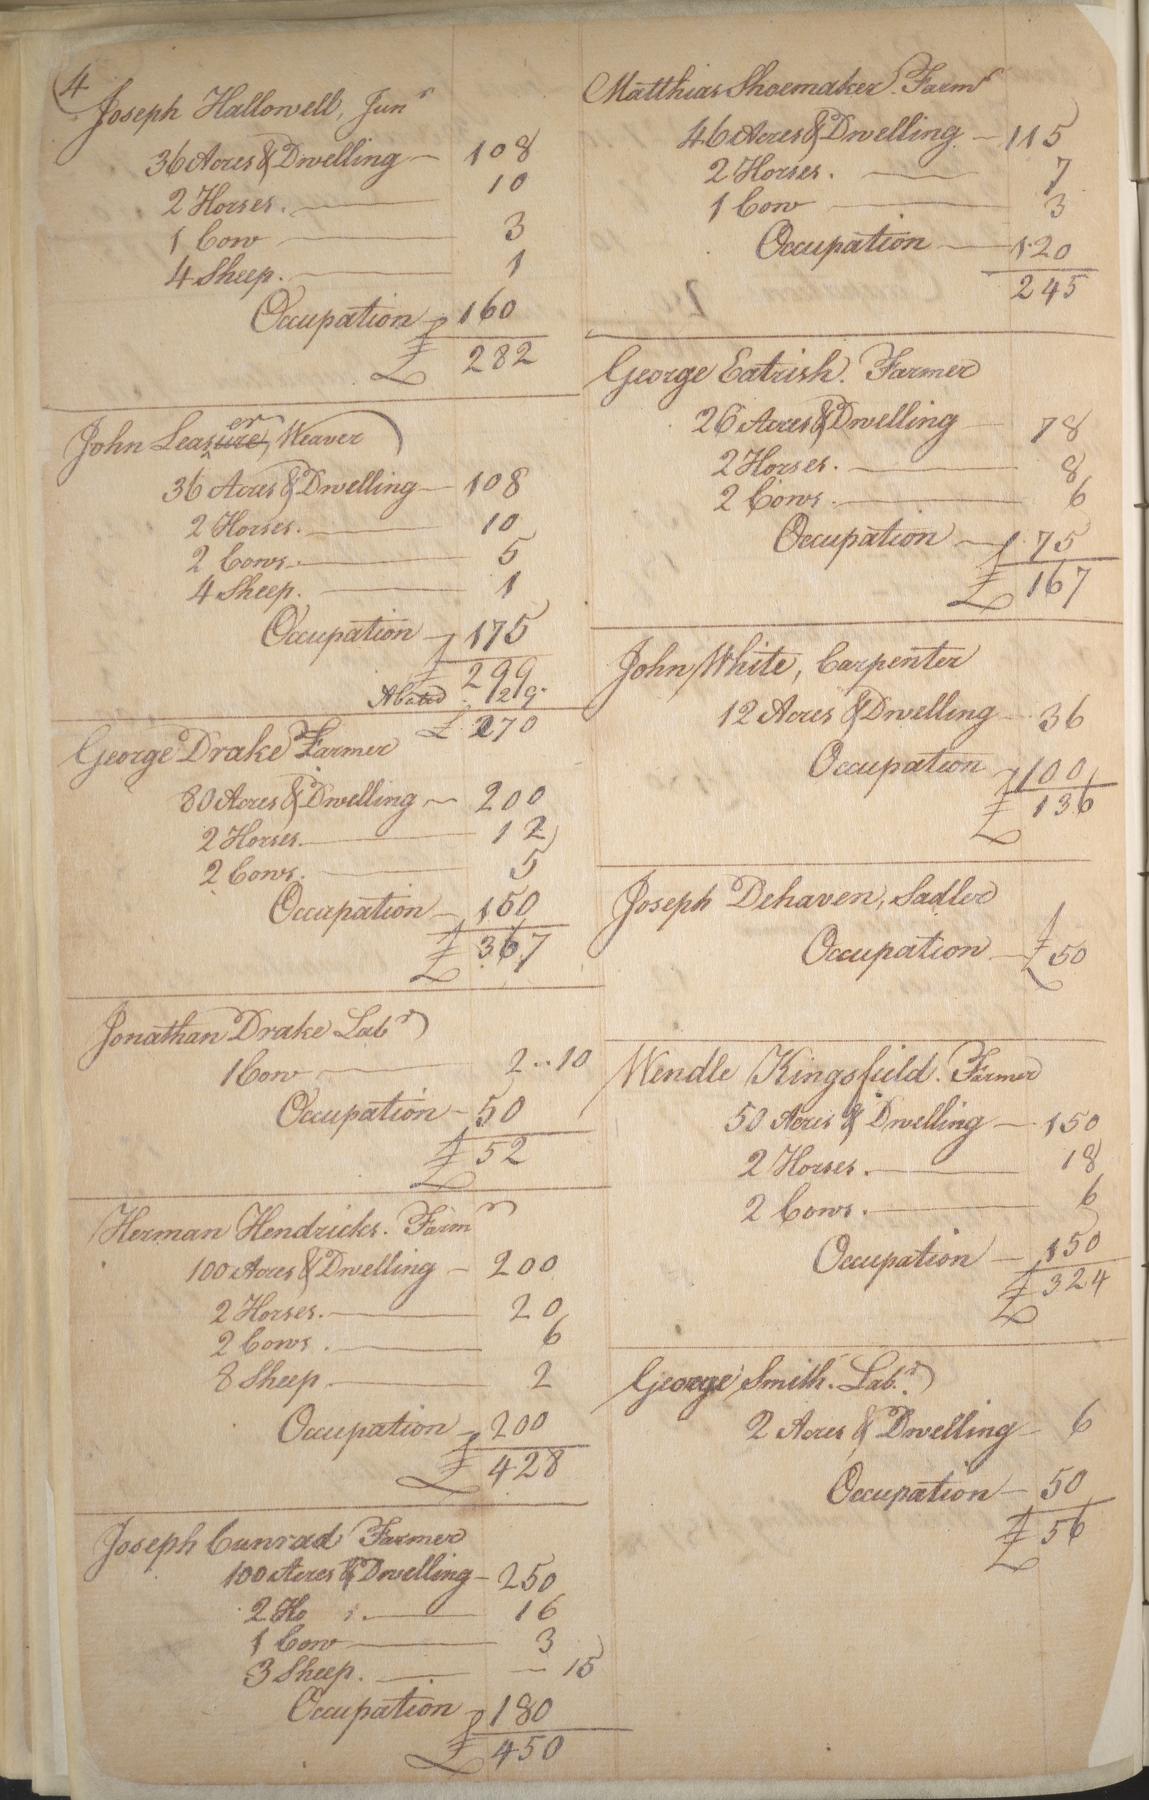 4
Joseph Hallowell, Junr
36 Acres & Dwelling — 108
2 Horses. — 10
1 Cow — 3
4 Sheep. — 1
Occupation — 160
£ 282
John Leasureer, Weaver
36 Acres & Dwelling — 108
2 Horses. — 10
2 Cows. — 5
4 Sheep. — 1
Occupation — 175
£ 299
Abated 29
£ 270
George Drake Farmer
80 Acres & Dwelling — 200
2 Horses. — 12
2 Cows. — 5
Occupation — 150
£ 367
Jonathan Drake Labr
1 Cow — 2..10
Occupation — 50
£ 52
Herman Hendricks. Farmr
100 Acres & Dwelling — 200
2 Horses. — 20
2 Cows. — 6
8 Sheep — 2
Occupation — 200
£ 428
Joseph Cunrad Farmer
100 Acres & Dwelling — 250
2 Ho s. — 16
1 Cow — 3
3 Sheep. — — 15
Occupation — 180
£ 450
Matthias Shoemaker. Farmr
46 Acres & Dwelling — 115
2 Horses. — 7
1 Cow — 3
Occupation — 120
245
George Eatrish. Farmer
26 Acres & Dwelling — 78
2 Horses. — 8
2 Cows. — 6
Occupation — 75
£ 167
John White, Carpenter
12 Acres & Dwelling — 36
Occupation — 100
£ 136
Joseph Dehaven, Sadler
Occupation — £ 50
Wendle Kingsfield. Farmer
50 Acres & Dwelling — 150
2 Horses. — 18
2 Cows. — 6
Occupation — 150
£ 324
George Smith. Labr.
2 Acres & Dwelling — 6
Occupation — 50
£ 56